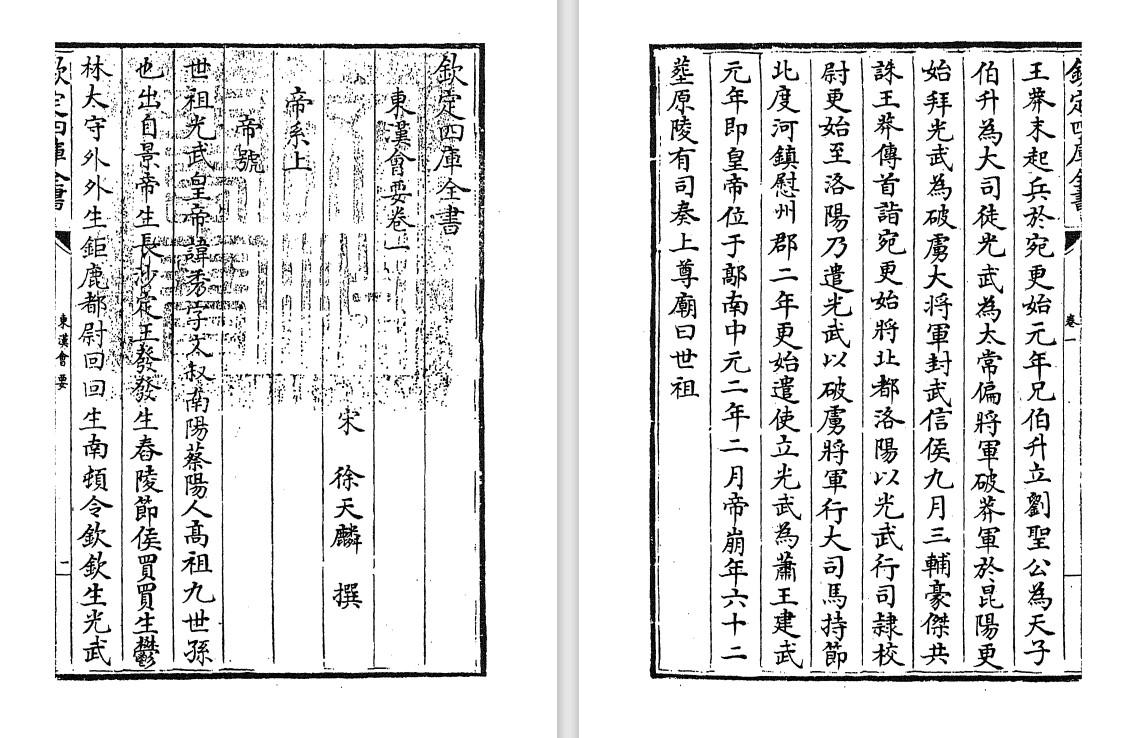 欽定四庫全書
東漢會要卷一
宋 徐天麟 撰
帝系上
帝號
世祖光武皇帝諱秀字文叔南陽蔡陽人高祖九世孫
也出自景帝生長沙定王發發生舂陵節侯買買生鬱
林太守外外生鉅鹿都尉回回生南頓令欽欽生光武
欽定四庫全書
東漢會要
欽定四庫全書
卷一
王莽末起兵於宛更始元年兄伯升立劉聖公為天子
伯升為大司徒光武為太常偏將軍破莽軍於昆陽更
始拜光武為破虜大將軍封武信侯九月三輔豪傑共
誅王莽傳首詣宛更始將北都洛陽以光武行司隷校
尉更始至洛陽乃遣光武以破虜將軍行大司馬持節
北度河鎮慰州郡二年更始遣使立光武為蕭王建武
元年即皇帝位于鄗南中元二年二月帝崩年六十二
塟原陵有司奏上尊廟曰世祖